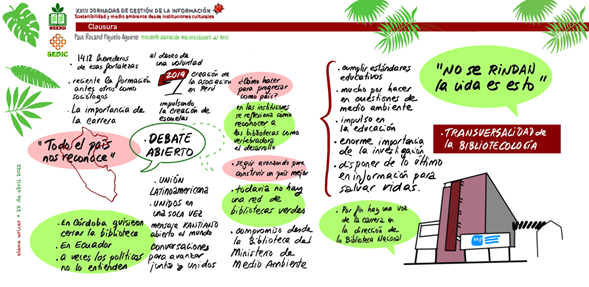 XXIII JORNADAS DE GESTIÓN DE LA INFORMACIÓN
Sostenibilidad y medio ambiente desde instituciones culturales
Clausura
SEDIC
. 1412 herederos
de esas fortalezas
. reciente la formación
antes otros como
sociólogos
. La importancia de
la carrera
"Todo el país
nos reconoce"
. En Córdoba quisieron
cerrar la biblioteca
. En Ecuador
. a veces los políticos
no lo entienden
al deseo de
una voluntad
2019
creación de
la asociación
en Perú
impulsando
la creación de
escuelas
. DEBATE
ABIERTO
. UNIÓN
LATINOAMERICANA
. UNIDOS EN
UNA SOLA VEZ
mensaje KANTIANO
abierto al mundo
conversaciones
para avanzar
junto y unidos
¿Cómo hacer
para progresar
como país?
en las instituciones
se reflexiona cómo
reconocer a
las bibliotecas como
vertebradora
el desarrollo
. seguir avanzando para
construir un país mejor
. todavía no hay
una red de
bibliotecas verdes
. compromiso desde
la Biblioteca del
Ministerio de
Medio Ambiente
. cumplir estándares
educativos
. mucho por hacer
en cuestiones de
medio ambiente
. impulso en
la educación
. enorme importancia
de la investigación
. disponer de lo último
en información para
salvar vidas.
"NO SE RINDAN
la vida es esto"
. TRANSVERSALIDAD de
la BIBLIOTECOLOGÍA
. Por fin hay una voz
de la carrera en
la dirección de
la Biblioteca Nacional
29 de abril 2022